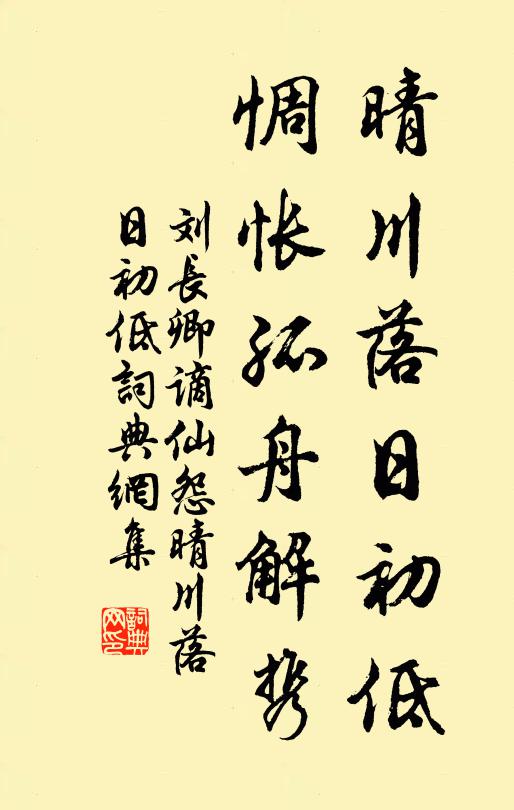 晴川落日初低
惆怅孤舟解携
刘長卿谪仙怨晴川落
日初低詞典網集
詞典网印